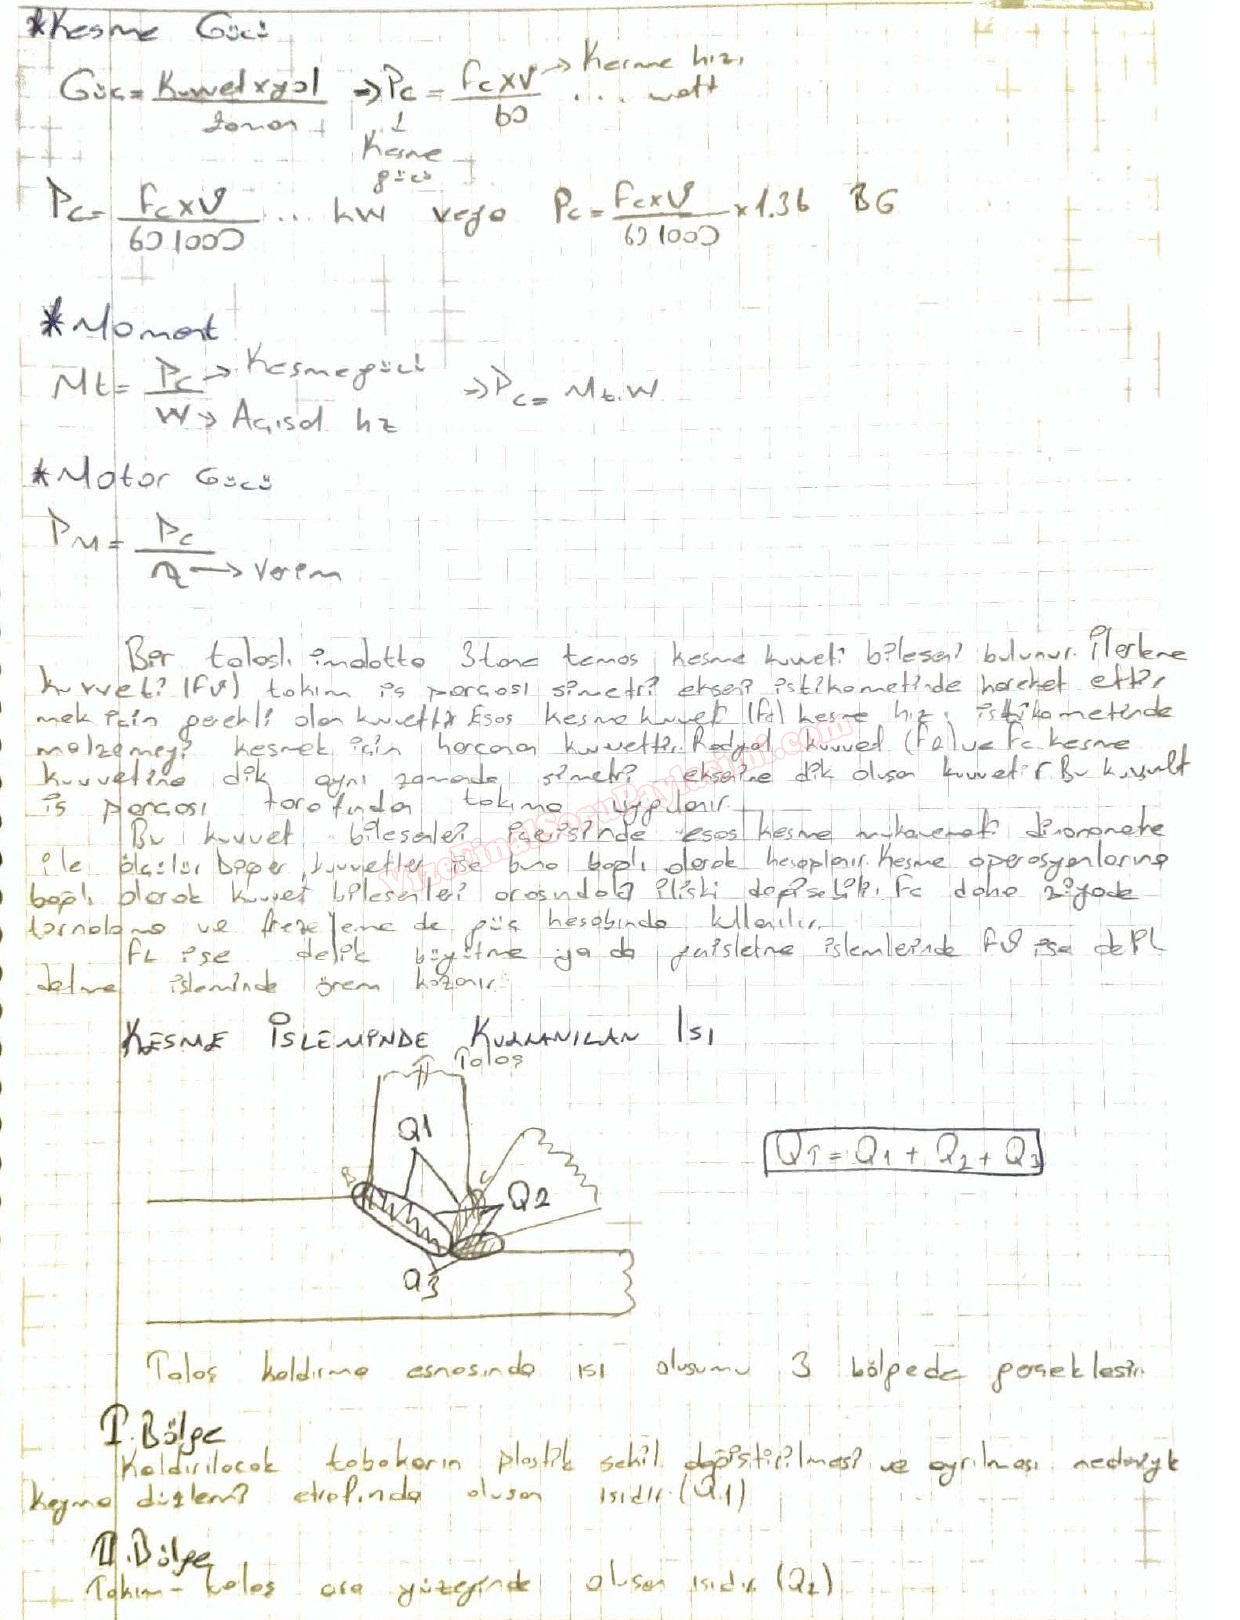 *Kesme Gücü
Güç = Kuvvet x yol / Zaman => Pc = Fc x V / 60 → Kesme hızı ... watt
Kesme gücü
Pc = Fc x V / 60 1000 ... kW veya Pc = Fc x V / 60 1000 x 1.36 BG
*Moment
Mt = Pc → Kesme gücü / W → Açısal hız => Pc = Mt. W
*Motor Gücü
PM = Pc / η → Verim
Bir talaşlı imalatta 3 tane temas kesme kuvveti bileşeni bulunur. İlerleme
kuvveti (FV) takım iş parçası simetri ekseni istikametinde hareket ettir
mek için gerekli olan kuvvettir Esas kesme kuvveti (Fc) kesme hızı istikametinde
malzemeyi kesmek için harcanan kuvvettir. Radyal kuvvet (FL) ve Fc kesme
kuvvetine dik aynı zamanda simetri eksenine dik oluşan kuvvetir. Bu kuvvet
iş parçası tarafından takıma uygulanır
Bu kuvvet bileşenleri içerisinde esas kesme mukavemeti dinamometre
ile ölçülür Diğer kuvvetler ise buna bağlı olarak hesaplanır. Kesme operasyonlarına
bağlı olarak kuvvet bileşenleri arasındaki ilişki değişebilir. Fc daha ziyade
tornalama ve frezeleme de güç hesabında kullanılır.
FL ise delik büyütme ya da genişletme işlemlerinde FV ise delik
delme işleminde önem kazanır.
KESME İŞLEMİNDE KULLANILAN ISI
Talaş
Q1
QT = Q1 + Q2 + Q3
Q2
Q3
Talaş kaldırma esnasında ısı oluşumu 3 bölgede gerçekleşir.
I. Bölge
Kaldırılacak tabakanın plastik şekil değiştirilmesi ve ayrılması nedeniyle
kayma düzlemi etrafında oluşan ısıdır. (Q1)
II. Bölge
Takım - talaş ara yüzeyinde oluşan ısıdır (Q2)
VizeFinalSoruPaylasimi.com